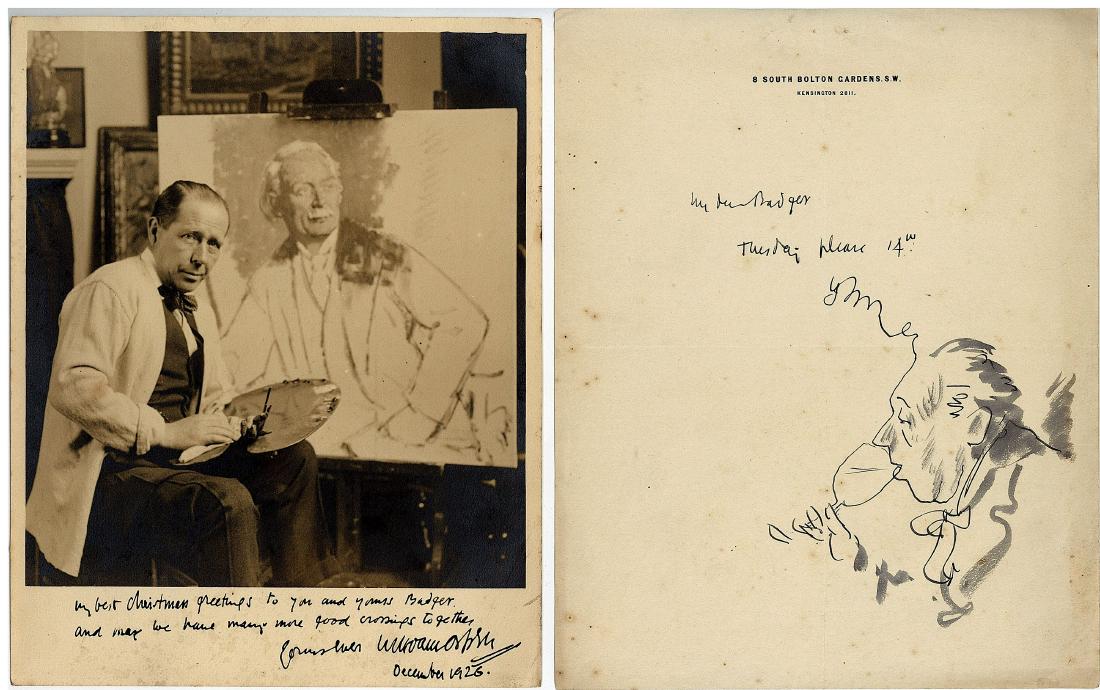 my best Christmas greetings to you and yours Badger.
and may we have many more good crossings together
Yours ever William Orpen
December 1926.
8 SOUTH BOLTON GARDENS. S.W.
KENSINGTON 2811.
My dear Badger
Tuesday please 14th